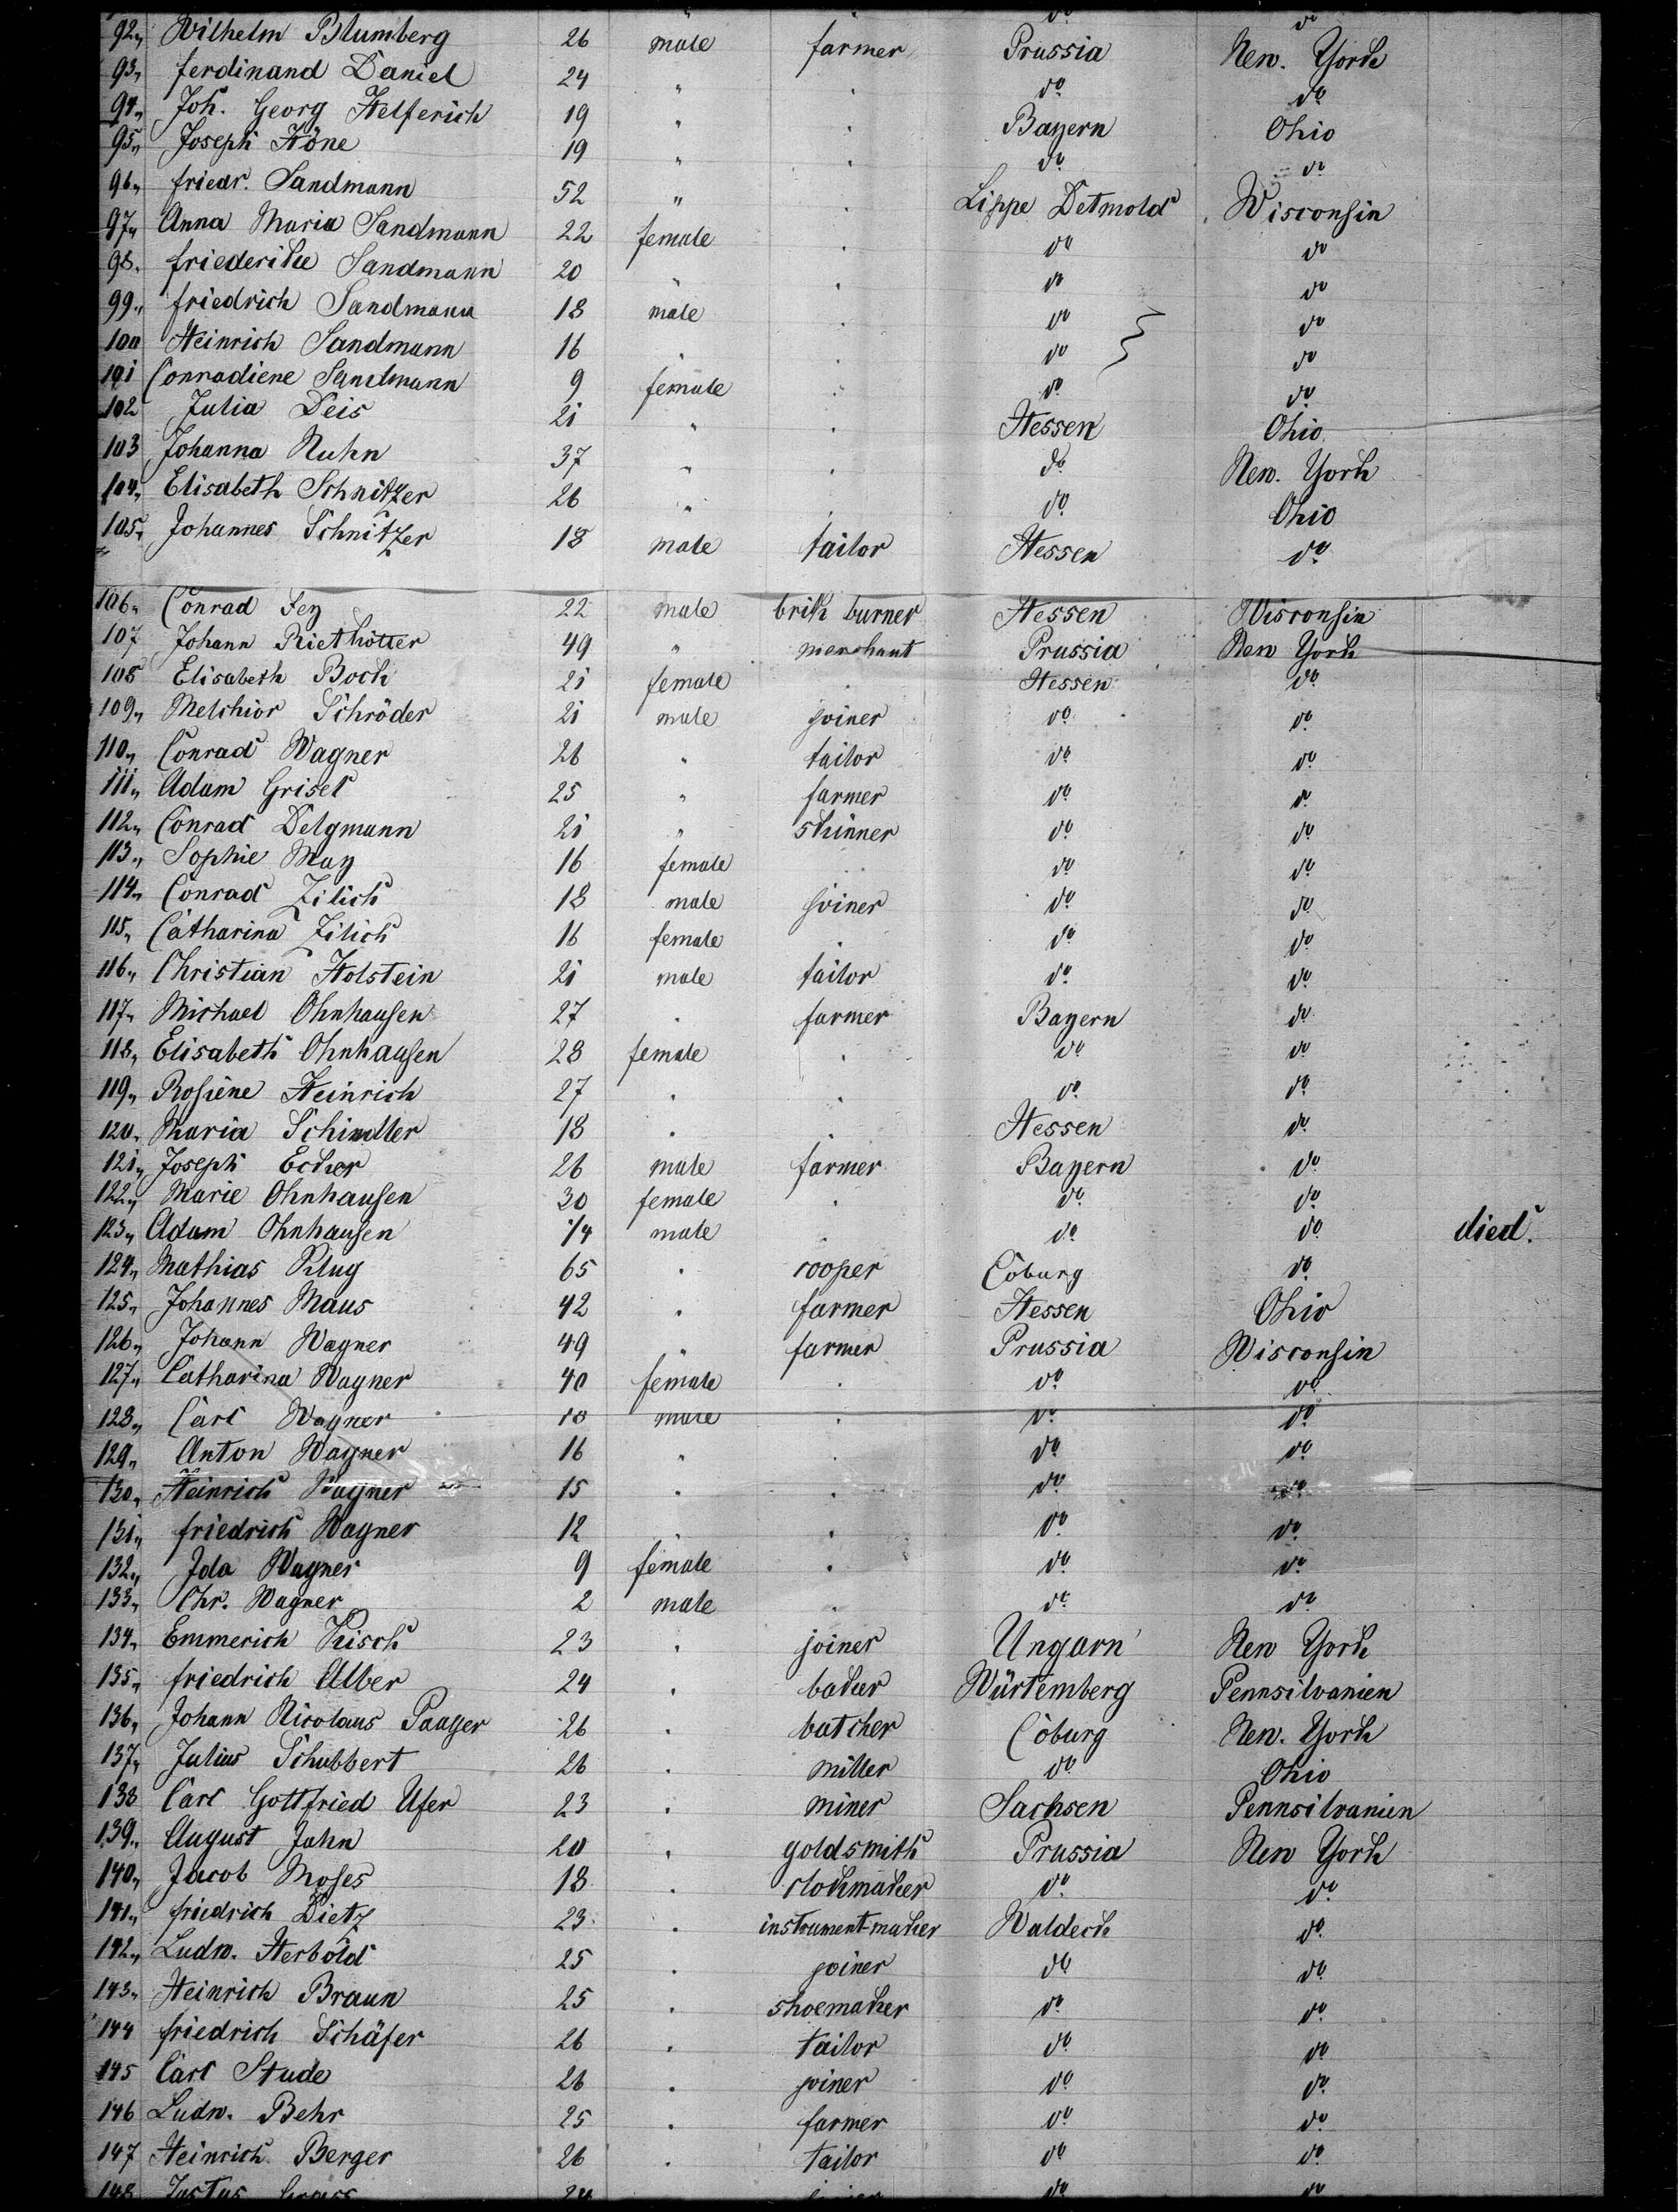 " do do
92„ Wilhelm Blumberg 26 male farmer Prussia New. York
93„ ferdinand Daniel 24 " . do do
94„ Joh. Georg Helferich 19 " . Bayern Ohio
95„ Joseph Höne 19 " . do do
96„ friedr. Sandmann 52 " . Lippe Detmold Wisconsin
97„ Anna Maria Sandmann 22 female . do do
98. friederike Sandmann 20 " . do do
99„ friedrich Sandmann 18 male . do do
100 Heinrich Sandmann 16 . . do do
101 Conradiene Sandmann 9 female . do do
102 Julia Deis 21 " . Hessen Ohio
103 Johanna Kuhn 37 " . do New. York
104„ Elisabeth Schnitzer 26 " . do Ohio
105„ Johannes Schnitzer 18 male tailor Hessen do
106„ Conrad Fey 22 male brik burner Hessen Wisconsin
107 Johann Riethötter 49 " merchant Prussia New York
108 Elisabeth Bock 21 female . Hessen do
109„ Melchior Schröder 21 male joiner do do
110„ Conrad Wagner 26 " tailor do do
111„ Adam Grisel 25 " farmer do do
112„ Conrad Delgmann 21 " skinner do do
113„ Sophie May 16 female . do do
114„ Conrad Zilich 18 male joiner do do
115„ Catharina Zilich 16 female . do do
116„ Christian Holstein 21 male tailor do do
117„ Michael Ohnhausen 27 . farmer Bayern do
118„ Elisabeth Ohnhausen 28 female . do do
119„ Rosiene Heinrich 27 . . do do
120„ Maria Schindler 18 . . Hessen do
121„ Joseph Ecker 26 male farmer Bayern do
122„ Marie Ohnhausen 30 female . do do
123„ Adam Ohnhausen 1/4 male . do do died.
124„ Mathias Klug 65 . cooper Coburg do
125„ Johannes Maus 42 . farmer Hessen Ohio
126„ Johann Wagner 49 . farmer Prussia Wisconsin
127„ Catharina Wagner 40 female . do do
128„ Carl Wagner male . do do
129„ Anton Wagner 16 " . do do
130„ Heinrich Wagner 15 . . do do
131„ friedrich Wagner 12 . . do do
132„ Ida Wagner 9 female . do do
133„ Chr. Wagner 2 male . do do
134„ Emmerich Kisch 23 . joiner Ungarn New York
135„ friedrich Alber 24 . baker Würtemberg Pennsilvanien
136„ Johann Nicolaus 26 . butcher Coburg New. York
137„ Julius Schubbert 26 . miller do Ohio
138 Carl Gottfried Ufer 23 . miner Sachsen Pennsilvanien
139„ August Jahn 20 . goldsmith Prussia New York
140„ Jacob Moses 18 . clokmaker do do
141„ friedrich Dietz 23 . instrument-maker Waldeck do
142„ Ludw. Herbold 25 . joiner do do
143„ Heinrich Braun 25 . shoemaker do do
144 friedrich Schäfer 26 . tailor do do
145 Carl Stude 26 . joiner do do
146 Ludw. Behr 25 . farmer do do
147 Heinrich Berger 26 . tailor do do
148 Justus do do